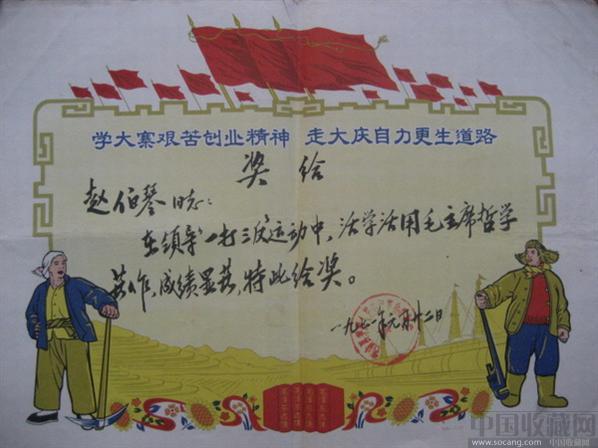 学大寨艰苦创业精神 走大庆自力更生道路
奖给
赵伯琴同志:
在领导一打三反运动中,活学活用毛主席哲学
著作,成绩显著,特此给奖。
一九七一年元月廿二日
中国收藏网
www.socang.com 中国收藏网